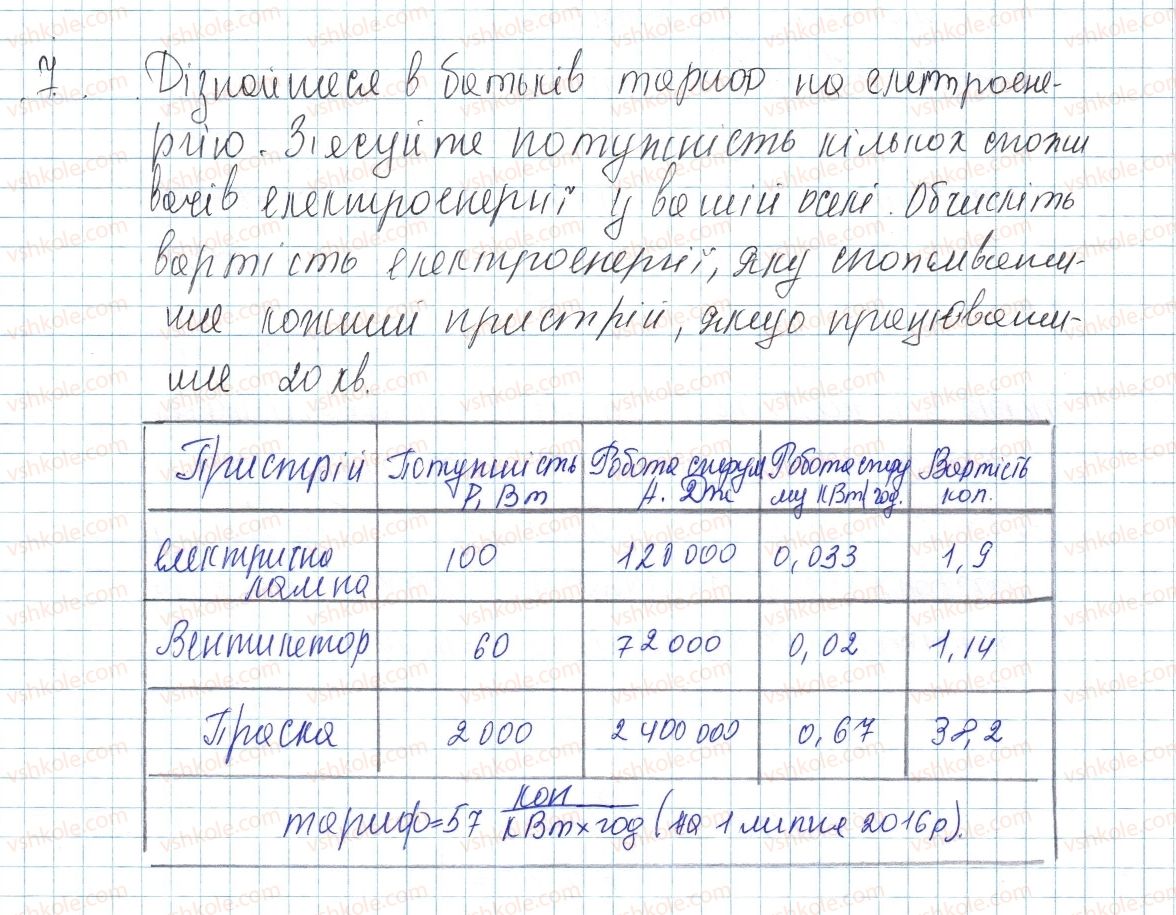 7. Дізнайтеся в батьків тариф на електроене-
ргію. З'ясуйте потужність кількох спожи
вачів електроенергії у вашій оселі. Обчисліть
вартість електроенергії, яку споживати-
ме кожний пристрій, якщо працювати-
ме 20 хв.
Пристрій Потужність Робота струму Робота стру Вартість
P, Вт А. Дж му кВт/год. коп.
електрична 100 120 000 0,033 1,9
лампа
Вентилятор 60 72 000 0,02 1,14
Праска 2 000 2 400 000 0,67 38,2
коп
тариф=57 кВт×год (на 1 липня 2016р).